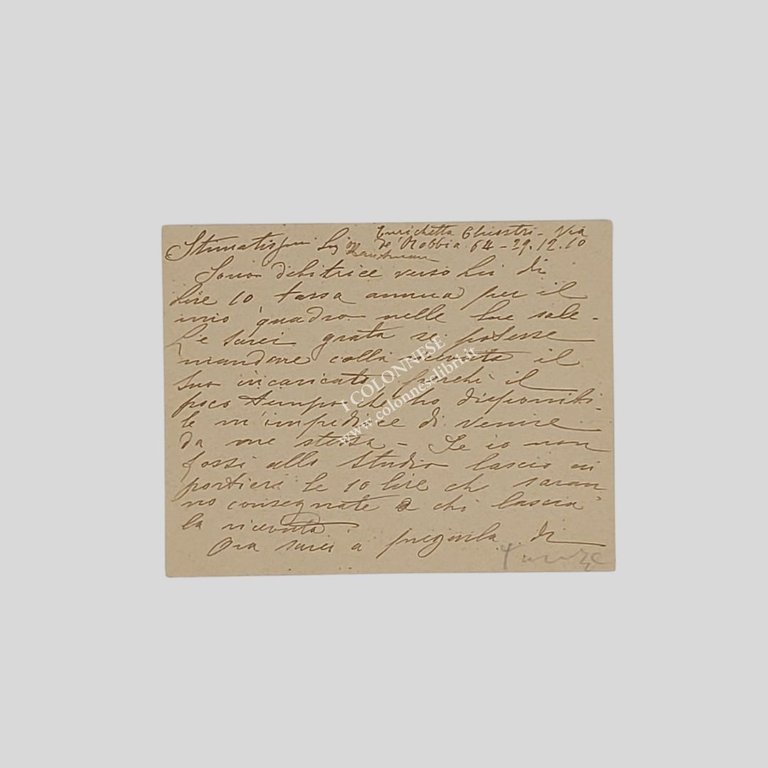 Enrichetta Chiostri - Via
Stimatissm Sig de' Robbia 64 - 29.12.10
Sono debitrice verso Lei di
lire 10 tassa annua per il
mio quadro nelle sue sale.
Le sarei grata se potesse
mandare colla ricevuta il
suo incaricato, perchè il
poco tempo che ho disponibi-
le m'impedisce di venire
da me stessa - Se io non
fossi allo studio lascio ai
portieri le 10 lire che saran
no consegnate a chi lascia
la ricevuta
Ora sarei a pregarla di
Firenze
I COLONNESE
www.colonneselibri.it